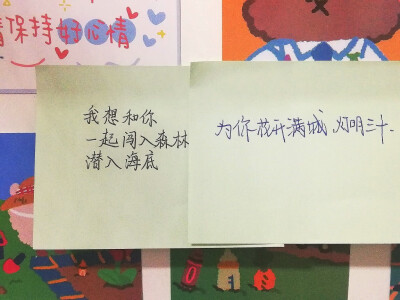 请保持好心情
我想和你
一起闯入森林
潜入海底
为你放开满城,灯明三十.